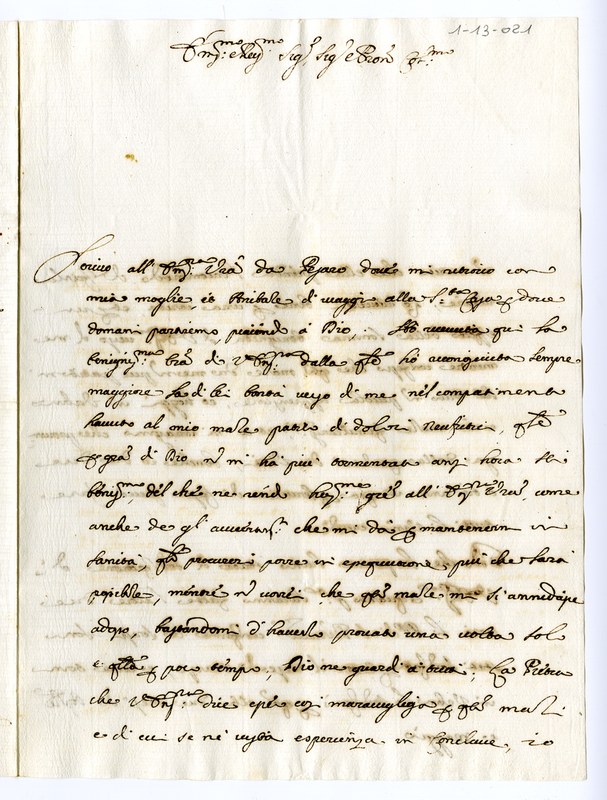 1-13-021
Em:mo e Rev:mo Sig.r Sig.r e Pron Col:mo
Scrivo all' Em:za V.ra da Pesaro dove mi ritrovo con
mia moglie, et Anibale di viaggi alla S.ta Casa p dove
domani partiremo, piacendo à Dio, Hò ricevuta qui la
benignis:ma l'ra di V. Em:za dalla q.le hò accongiuta sempre
maggiore la di lei bontà verso di me nel compatimento
havuto al mio male patito di dolor Neufritici, q.le
p gra di Dio n mi hà più tormentato anzi hora stò
beniss:mo, del che ne rendo gre all' Em:za V.ra, come
anche de gl' avvertim.ti che mi dà p mantenermi in
sanità, q.li procurerò porre in essequutione più che sarà
possibile, mentre n vorrei, che q.to male mi si annidasse
adosso, bastandomi d'haverlo provato una volta sol
e p poco tempo, Dio ne guardi ogn'; La Pietra
che V. Em:za dice esser così maravigliosa p q.sti mali
e di cui se ne vista esperienza in Conclave, io